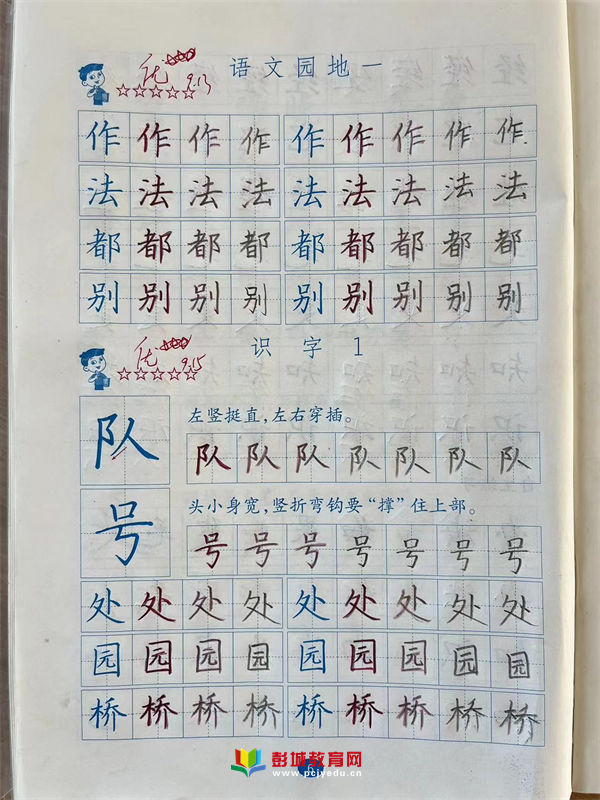 优 9.13
语文园地一
作作作作作作作作作
法法法法法法法法法
都都都都都都都都都
别别别别别别别别别
优 9.15
识字1
队
左竖挺直，左右穿插。
队队队队队队队队
号
头小身宽，竖折弯钩要“撑”住上部。
号号号号号号号号
处处处处处处处处处
园园园园园园园园园
桥桥桥桥桥桥桥桥桥
彭城教育网
www.pcjyedu.cn